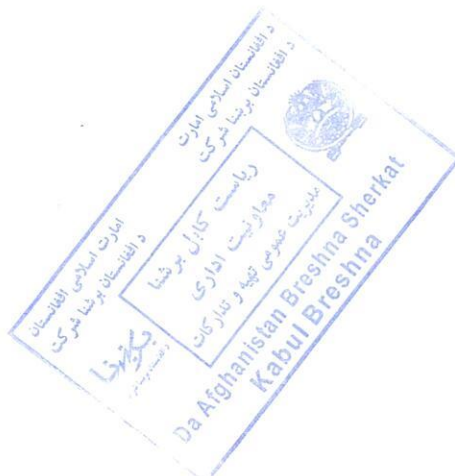 د افغانستان اسلامی امارت
د افغانستان برښنا شرکت
امارت اسلامی افغانستان
د افغانستان برشنا شرکت
ریاست کابل برشنا
معاونیت اداری
مدیریت عمومی تهیه و تدارکات
برښنا
Da Afghanistan Breshna Sherkat
Kabul Breshna